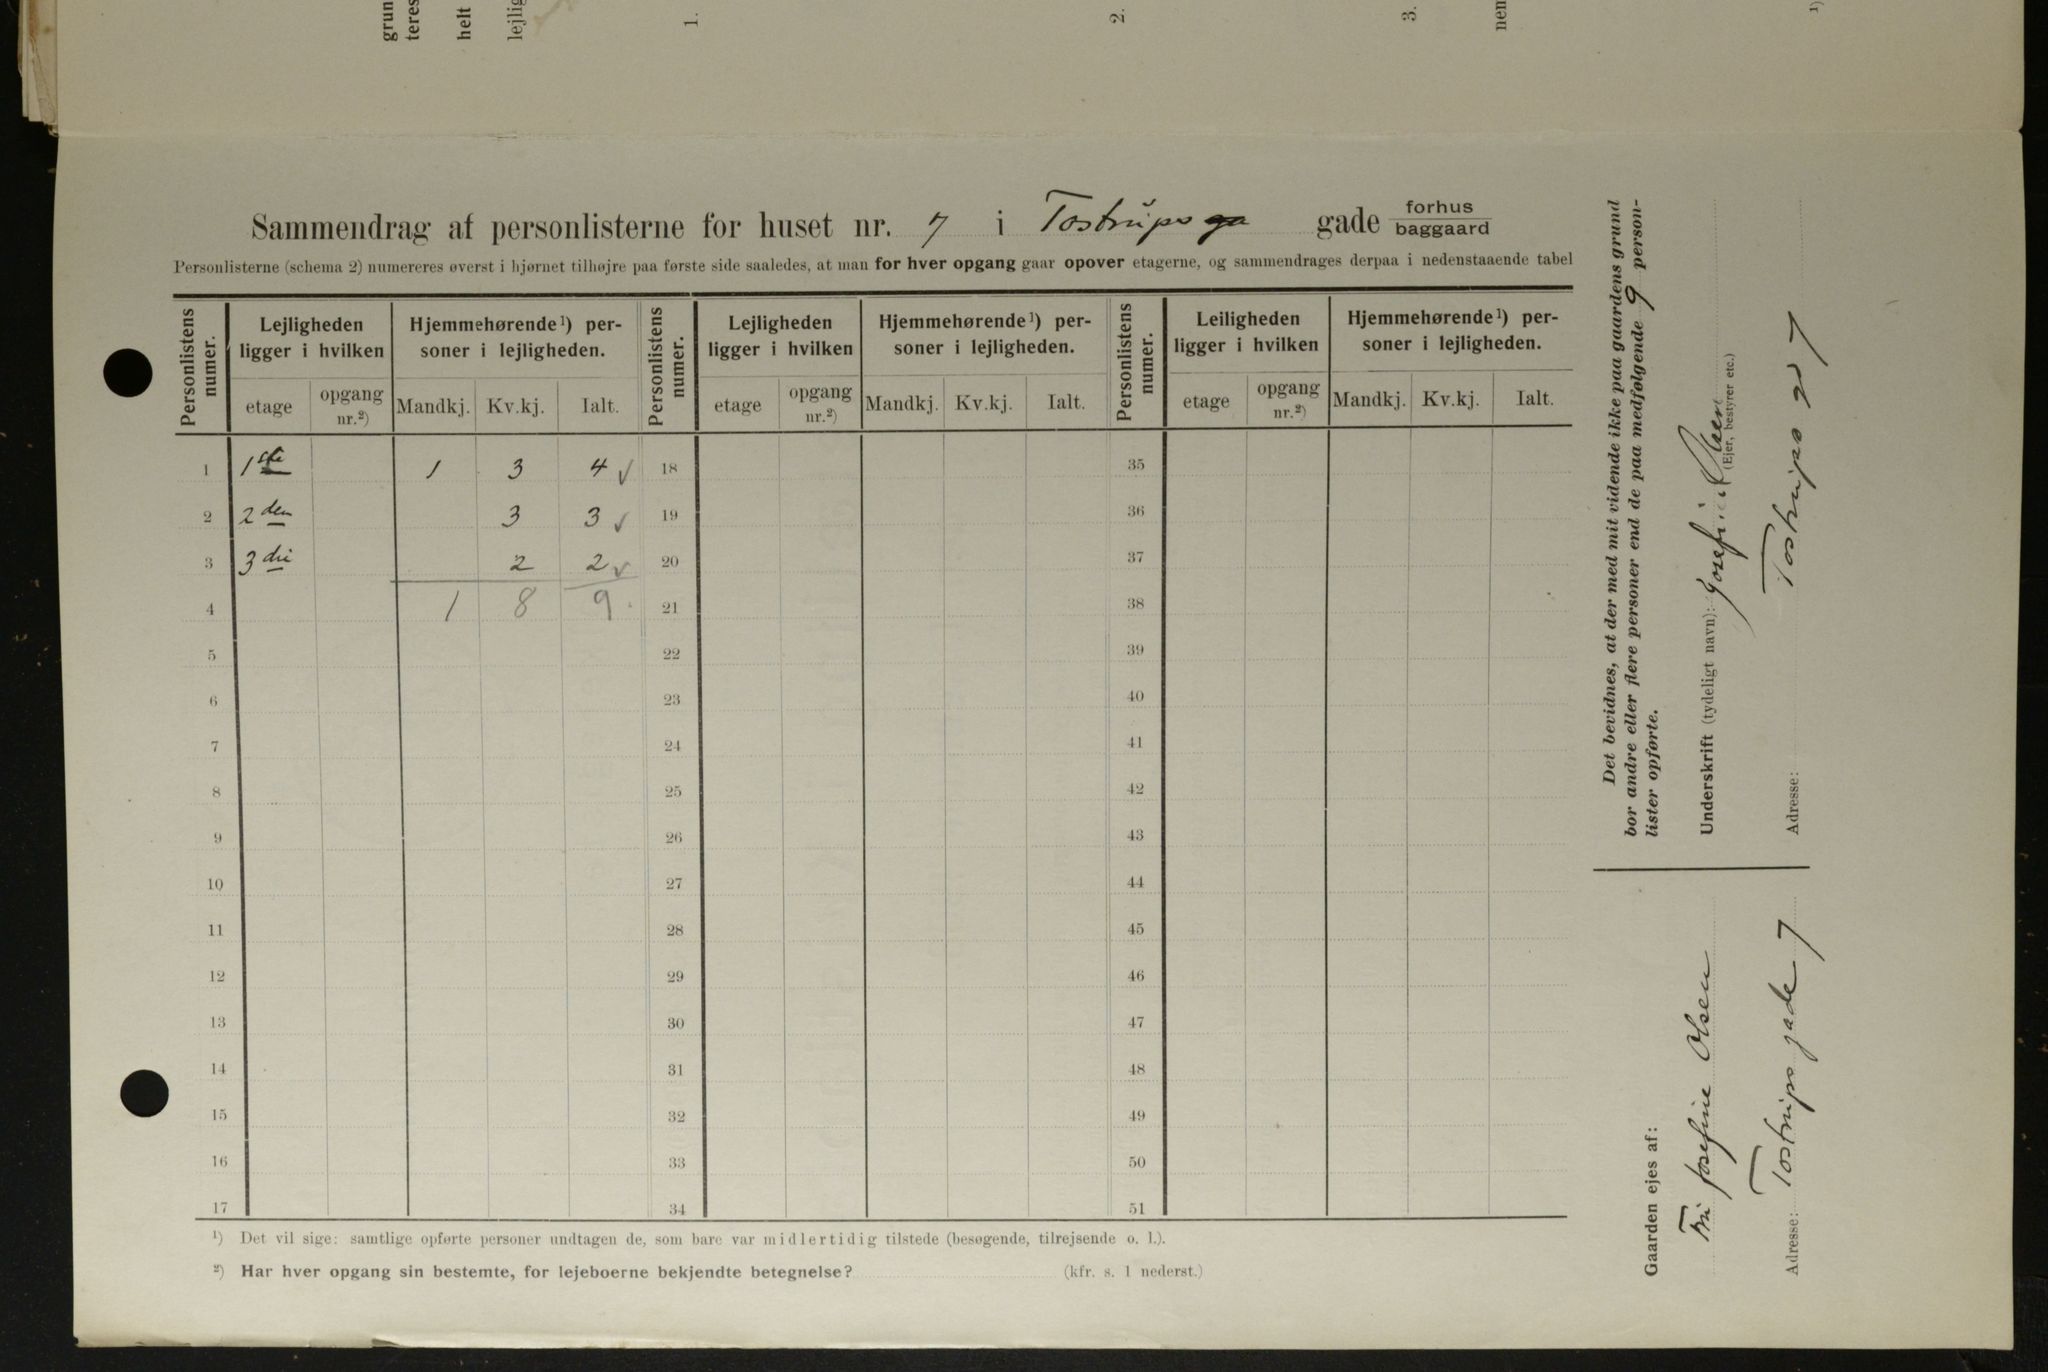 grun
teres
helt
lejlig
1.
2.
3.
nem
1)
Sammendrag af personlisterne for huset nr. 7 i Tostrups ga gade forhus
baggaard
Personlisterne (schema 2) numereres øverst i hjørnet tilhøjre paa første side saaledes, at man for hver opgang gaar opover etagerne, og sammendrages derpaa i nedenstaaende tabel
Personlistens numer. Lejligheden ligger i hvilken Hjemmehørende¹) personer i lejligheden. Personlistens numer. Lejligheden ligger i hvilken Hjemmehørende¹) personer i lejligheden. Personlistens numer. Leiligheden ligger i hvilken Hjemmehørende¹) personer i lejligheden.
etage opgang nr.²) Mandkj. Kv.kj. Ialt. etage opgang nr.²) Mandkj. Kv.kj. Ialt. etage opgang nr.²) Mandkj. Kv.kj. Ialt.
1 1ste 1 3 4 ✓ 18 35
2 2den 3 3 ✓ 19 36
3 3die 2 2 ✓ 20 37
4 1 8 9. 21 38
5 22 39
6 23 40
7 24 41
8 25 42
9 26 43
10 27 44
11 28 45
12 29 46
13 30 47
14 31 48
15 32 49
16 33 50
17 34 51
¹) Det vil sige: samtlige opførte personer undtagen de, som bare var midlertidig tilstede (besøgende, tilrejsende o. l.).
²) Har hver opgang sin bestemte, for lejeboerne bekjendte betegnelse? (kfr. s. 1 nederst.)
Det bevidnes, at der med mit vidende ikke paa gaardens grund
bor andre eller flere personer end de paa medfølgende 9 person-
lister opførte.
Underskrift (tydeligt navn): Josefine Olsen
(Ejer, bestyrer etc.)
Adresse: Tostrups gd 7
Gaarden ejes af:
Fru Josefine Olsen
Adresse: Tostrups gade 7